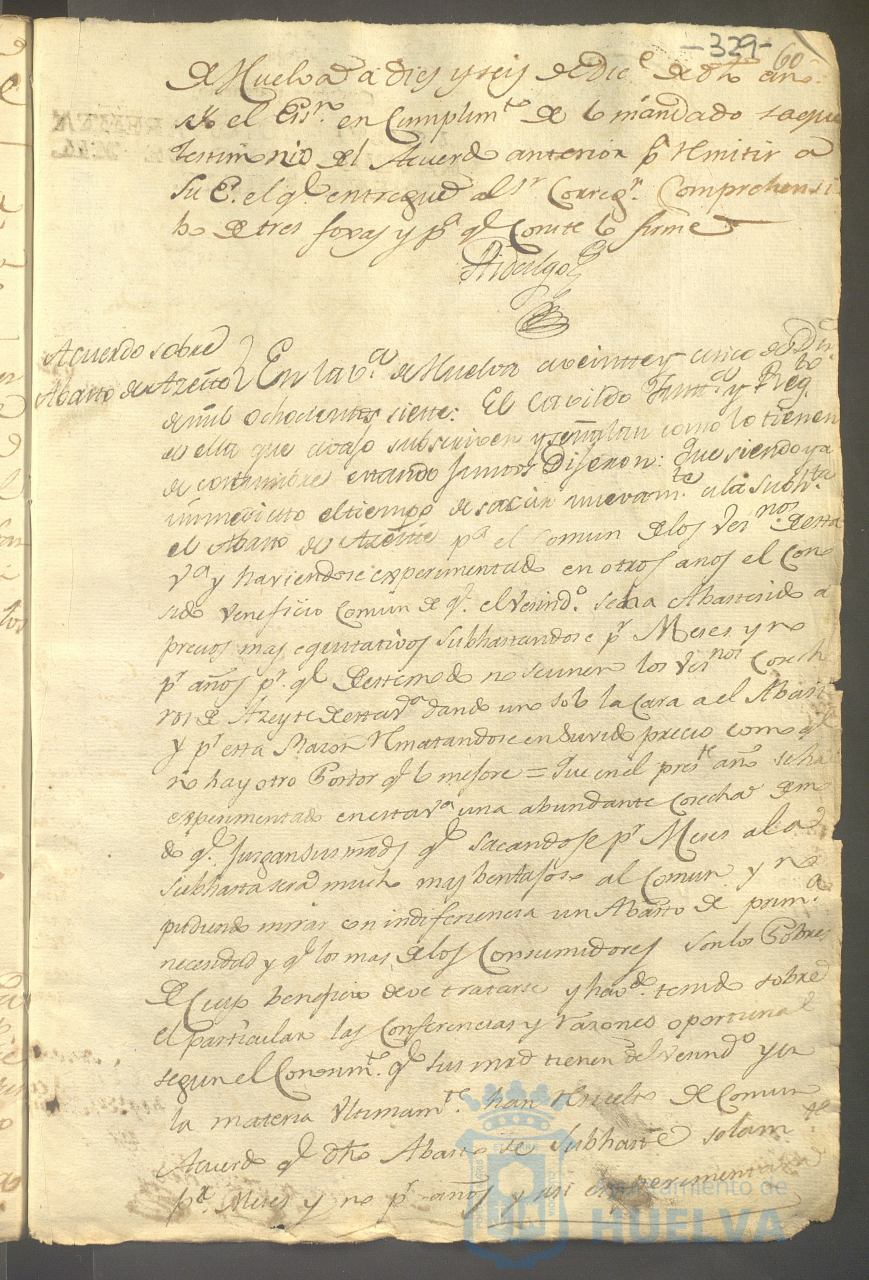 -329- 60
En Huelva a dies y seis de Dic.e de dho año:
Yo el Essno en Cumplim.to de lo mandado saque
testimonio del Acuerdo anterior pa remitir a
Su Ex.a el q.l entregue al Sr Corregr. Comprehensi
bo de tres foxas y pa q.l Conste lo firme
Hidalgo
Acuerdo sobre
Abasto de Azeite
En la v.a de Huelva a veintte y cinco de Dizre
de mil ochocientos siette: El Cavildo Justta y Regto
de ella que avajo subscriven y señalan como lo tienen
de costumbre estando Juntos Dixeron: Que siendo ya
inmediato el tiempo de sacar nuevam.te a la Subhta
el Abasto de Azeite p.a el comun de los Vesnos de esta
V.a y haviendose experimentado en otros años el Con
sido veneficio Comun de q.e el Vesindo sea Abastesido a
precios mas equitativos subhastandose p.r Meses y no
p.r años p.r q.e de este modo no se unen los Vesnos Coseche
ros de Azeyte de esta v.a dando uno solo la Cara a el Abasto
y p.r esta Razon rematandose en subido precio como q.e
no hay otro Postor q.e lo mejore = Que en el pres.te año se ha
experimentado en esta v.a una abundante Cosecha de mo
do q.e Jusgan sus mrds q.e sacandose p.r Meses al a
Subhasta será mucho mas bentajoso al Comun y no
pudiendo mirar con indiferencia un Abasto de prim.a
necesidad y q.e los mas de los Consumidores son los Pobres
de Cuio beneficio deve tratarse y havdo tenido sobre
el particular las Conferencias y razones oportunas
segun el Conosim.to q.e sus mrd tienen del Vesindo y en
la materia Ultimam.te han resuelto de Comun
Acuerdo q.e dho Abasto se Subhaste solam.te
p.r Meses y no p.r años y asi experimenta
Ayuntamiento de
HUELVA